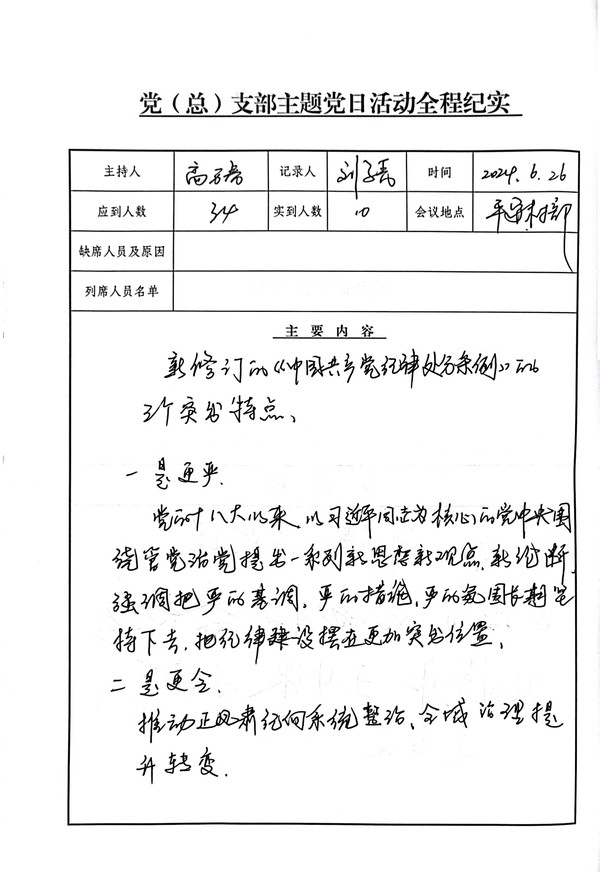 党（总）支部主题党日活动全程纪实
主持人 高 记录人 刘 时间 2024.6.26
应到人数 34 实到人数 10 会议地点 部
缺席人员及原因
列席人员名单
主要内容
新修订的《中国共产党纪律处分条例》的
3个突出特点、
一是更严.
党的十八大以来、以习近平同志为核心的党中央围
绕管党治党提出一系列新思想新观点.新论断,
强调把严的基调、严的措施、严的氛围长期坚
持下去,把纪律建设摆在更加突出位置、
二是更全.
推动正风肃纪向系统整治、全域治理提
升转变.